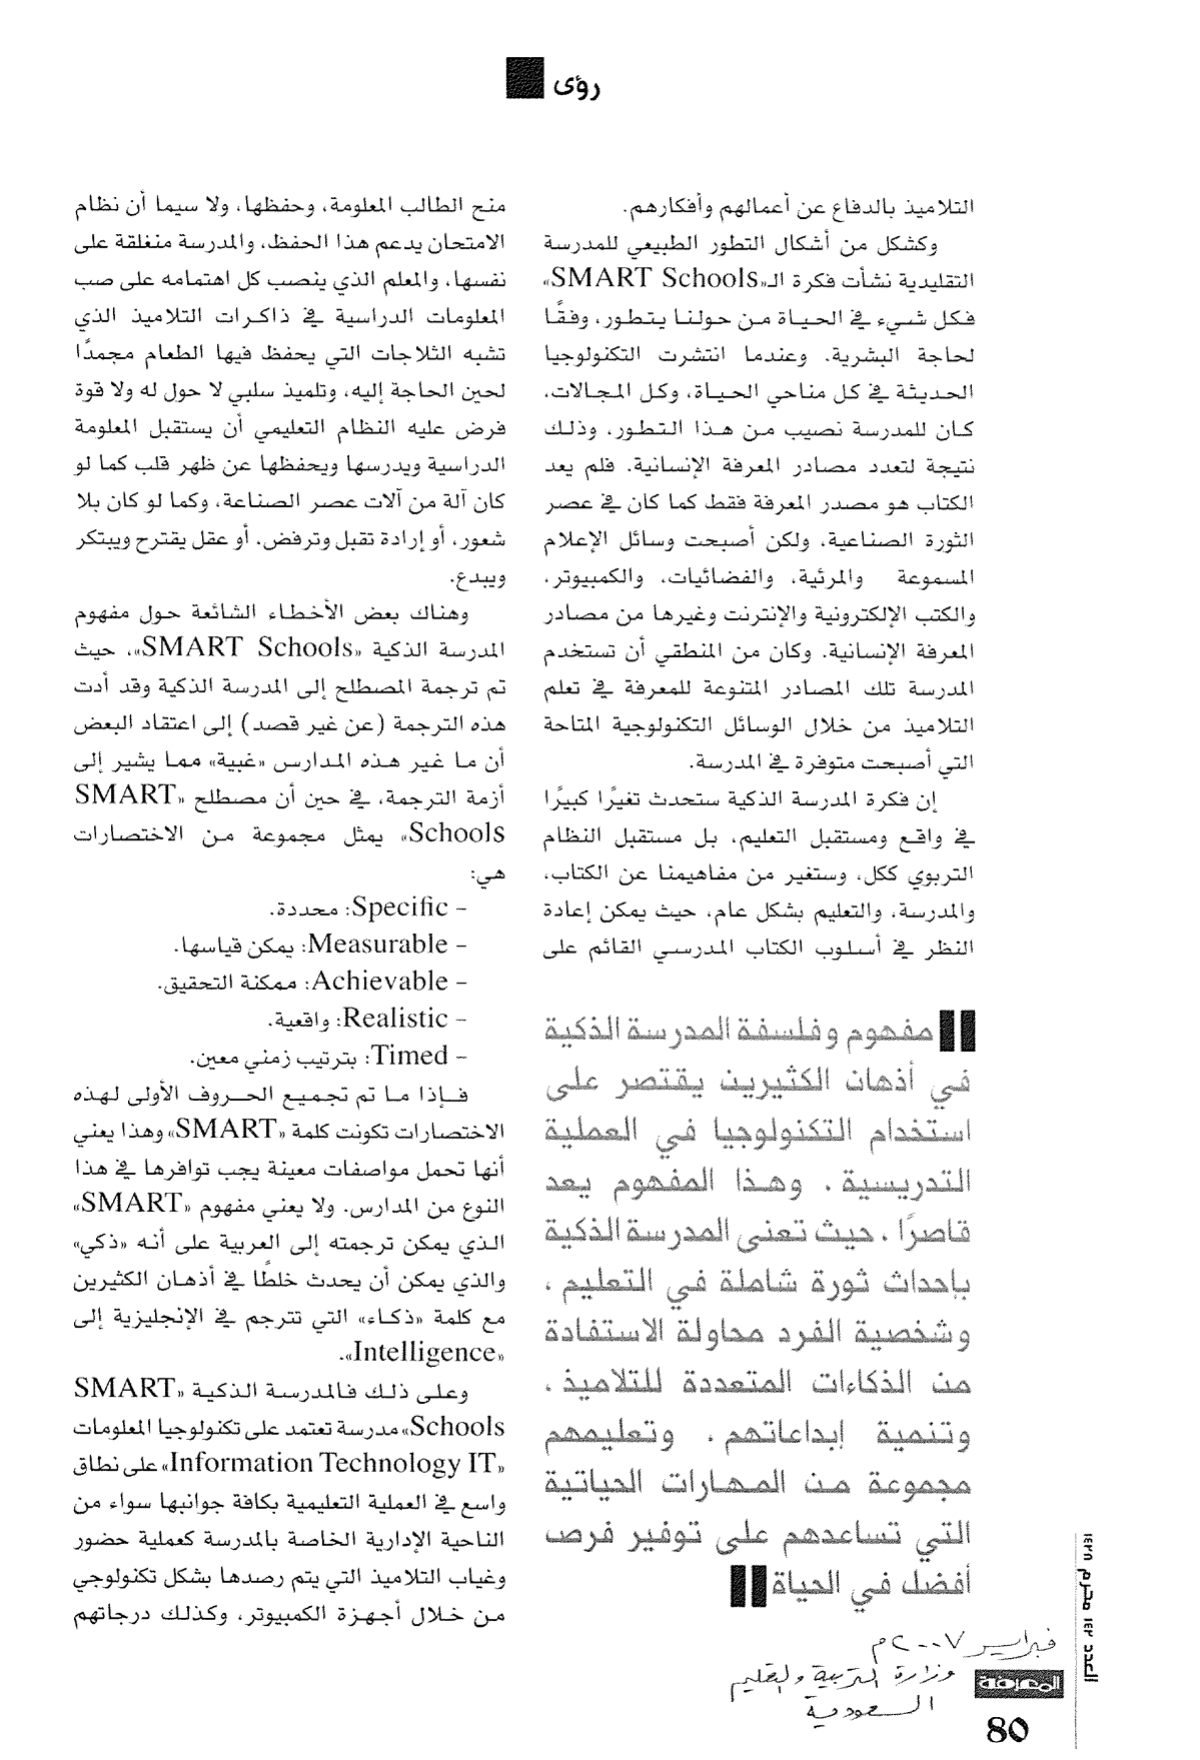 رؤى
التلاميذ بالدفاع عن أعمالهم وأفكارهم.
وكشكل من أشكال التطور الطبيعي للمدرسة
التقليدية نشأت فكرة الـ«SMART Schools»
فكل شيء في الحياة من حولنا يتطور، وفقًا
لحاجة البشرية. وعندما انتشرت التكنولوجيا
الحديثة في كل مناحي الحياة، وكل المجالات،
كان للمدرسة نصيب من هذا التطور، وذلك
نتيجة لتعدد مصادر المعرفة الإنسانية. فلم يعد
الكتاب هو مصدر المعرفة فقط كما كان في عصر
الثورة الصناعية، ولكن أصبحت وسائل الإعلام
المسموعة والمرئية، والفضائيات، والكمبيوتر،
والكتب الإلكترونية والإنترنت وغيرها من مصادر
المعرفة الإنسانية. وكان من المنطقي أن تستخدم
المدرسة تلك المصادر المتنوعة للمعرفة في تعلم
التلاميذ من خلال الوسائل التكنولوجية المتاحة
التي أصبحت متوفرة في المدرسة.
إن فكرة المدرسة الذكية ستحدث تغيرًا كبيرًا
في واقع ومستقبل التعليم، بل مستقبل النظام
التربوي ككل، وستغير من مفاهيمنا عن الكتاب،
والمدرسة، والتعليم بشكل عام، حيث يمكن إعادة
النظر في أسلوب الكتاب المدرسي القائم على
مفهوم وفلسفة المدرسة الذكية
في أذهان الكثيرين يقتصر على
استخدام التكنولوجيا في العملية
التدريسية. وهذا المفهوم يعد
قاصرًا، حيث تعنى المدرسة الذكية
بإحداث ثورة شاملة في التعليم،
وشخصية الفرد محاولة الاستفادة
من الذكاءات المتعددة للتلاميذ،
وتنمية إبداعاتهم، وتعليمهم
مجموعة من المهارات الحياتية
التي تساعدهم على توفير فرص
أفضل في الحياة
منح الطالب المعلومة، وحفظها، ولا سيما أن نظام
الامتحان يدعم هذا الحفظ، والمدرسة منغلقة على
نفسها، والمعلم الذي ينصب كل اهتمامه على صب
المعلومات الدراسية في ذاكرات التلاميذ الذي
تشبه الثلاجات التي يحفظ فيها الطعام مجمدًا
لحين الحاجة إليه، وتلميذ سلبي لا حول له ولا قوة
فرض عليه النظام التعليمي أن يستقبل المعلومة
الدراسية ويدرسها ويحفظها عن ظهر قلب كما لو
كان آلة من آلات عصر الصناعة، وكما لو كان بلا
شعور، أو إرادة تقبل وترفض، أو عقل يقترح ويبتكر
ويبدع.
وهناك بعض الأخطاء الشائعة حول مفهوم
المدرسة الذكية «SMART Schools»، حيث
تم ترجمة المصطلح إلى المدرسة الذكية وقد أدت
هذه الترجمة (عن غير قصد) إلى اعتقاد البعض
أن ما غير هذه المدارس «غبية» مما يشير إلى
أزمة الترجمة، في حين أن مصطلح «SMART
Schools» يمثل مجموعة من الاختصارات
هي:
- Specific: محددة.
- Measurable: يمكن قياسها.
- Achievable: ممكنة التحقيق.
- Realistic: واقعية.
- Timed: بترتيب زمني معين.
فإذا ما تم تجميع الحروف الأولى لهذه
الاختصارات تكونت كلمة «SMART» وهذا يعني
أنها تحمل مواصفات معينة يجب توافرها في هذا
النوع من المدارس. ولا يعني مفهوم «SMART»
الذي يمكن ترجمته إلى العربية على أنه «ذكي»
والذي يمكن أن يحدث خلطًا في أذهان الكثيرين
مع كلمة «ذكاء» التي تترجم في الإنجليزية إلى
«Intelligence».
وعلى ذلك فالمدرسة الذكية «SMART
Schools» مدرسة تعتمد على تكنولوجيا المعلومات
«Information Technology IT» على نطاق
واسع في العملية التعليمية بكافة جوانبها سواء من
الناحية الإدارية الخاصة بالمدرسة كعملية حضور
وغياب التلاميذ التي يتم رصدها بشكل تكنولوجي
من خلال أجهزة الكمبيوتر، وكذلك درجاتهم
العدد ١٤٢ محرم ١٤٢٨
فبراير ٢٠٠٧م
وزارة التربية والتعليم
السعودية
المعرفة
80